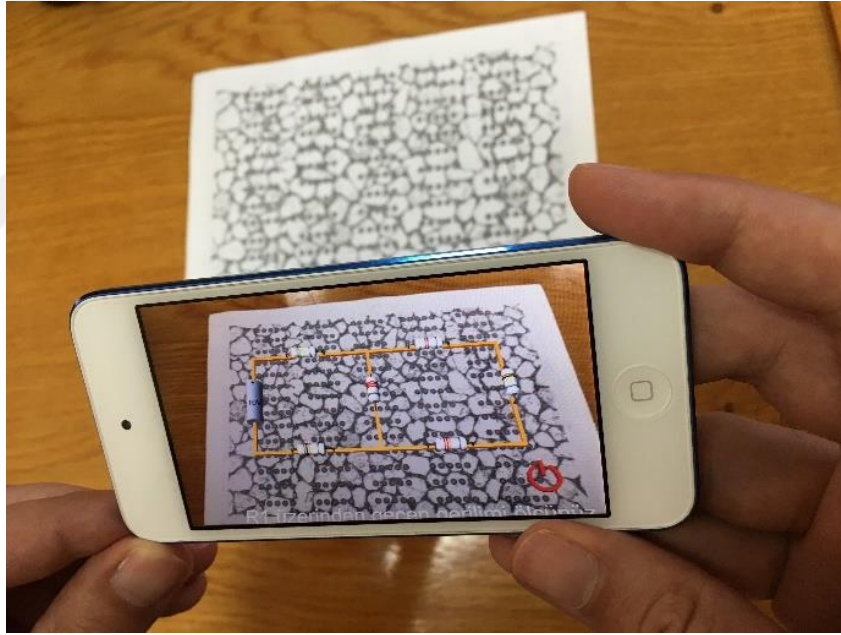 R1 üzerinden geçen gerilimi ölçünüz